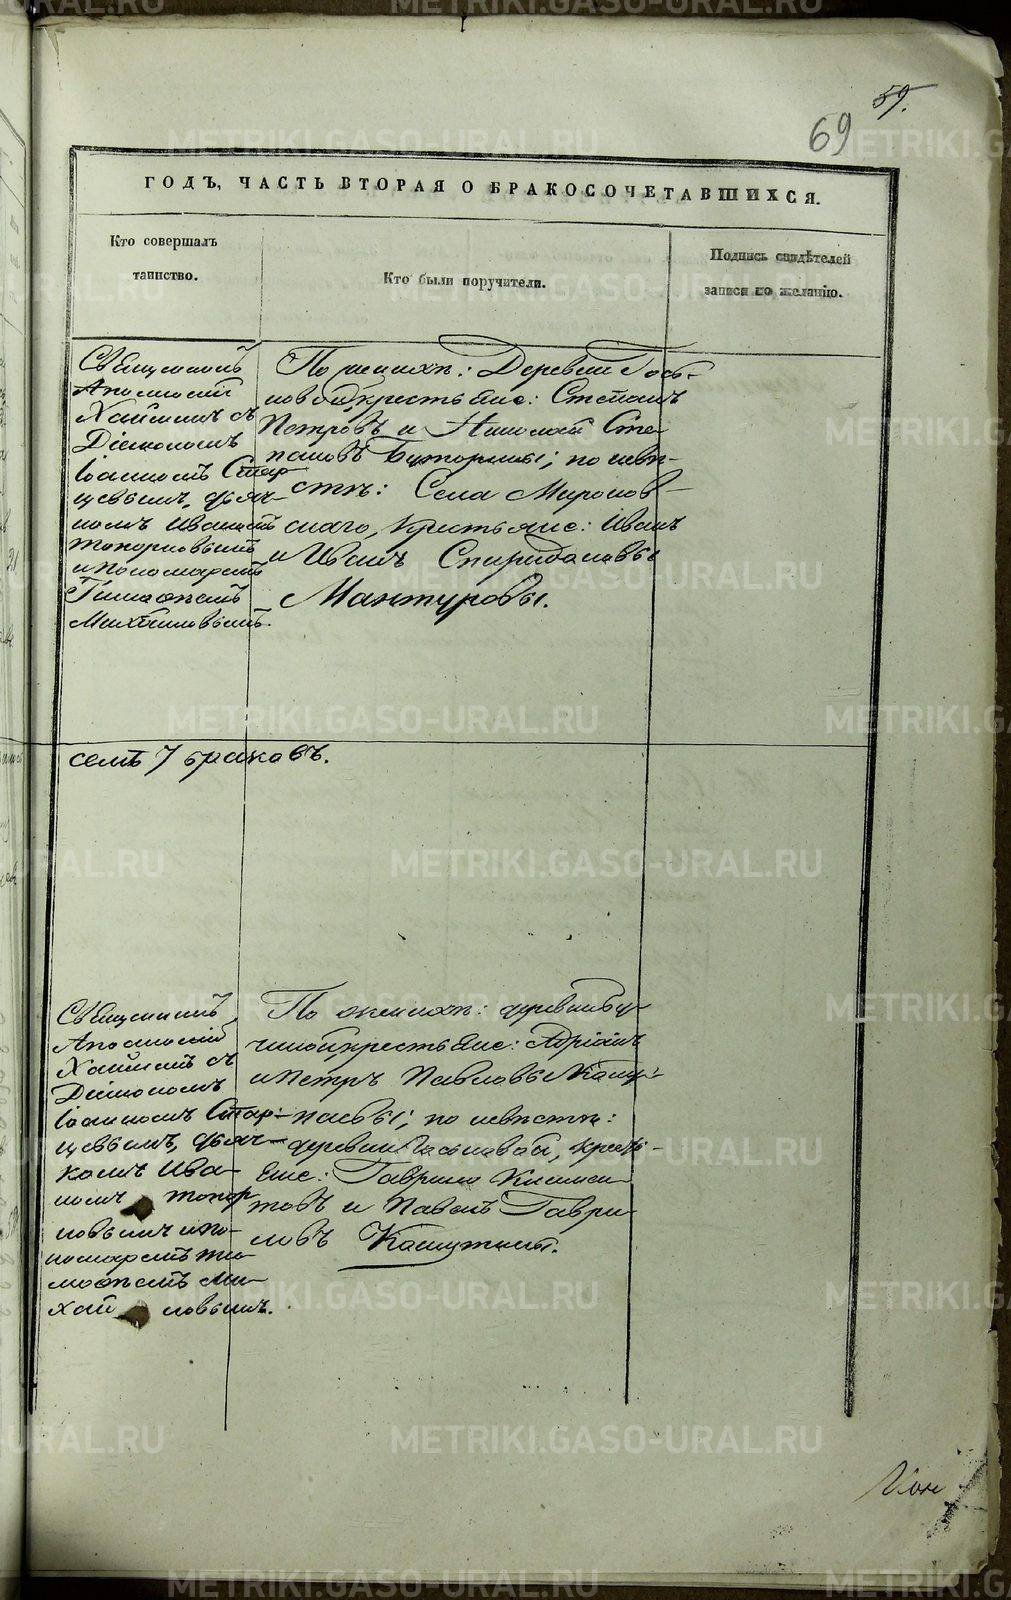 59.
69
ГОДЪ, ЧАСТЬ ВТОРАЯ О БРАКОСОЧЕТАВШИХСЯ.
Кто совершалъ
таинство.
Кто были поручители.
Подпись свидѣтелей
записи по желанію.
Священникъ
Хайминъ съ
Діакономъ
Іоанномъ Стар
цевымъ, дьяч-
комъ Иваномъ
Топорковымъ
и пономаремъ
Тимоѳеемъ
Михайловымъ.
По женихѣ: Деревни
новой крестьяне: Степанъ
Петровъ и Николай Сте
пановъ Буторины; по невѣ-
стѣ: Села Миронов-
скаго, крестьяне: Иванъ
и Иванъ Спиридоновы
Мантуровы.
семь 7 браковъ.
Священникъ
Хайминъ съ
Діакономъ
Іоанномъ Стар-
цевымъ, дьяч-
комъ Ива-
номъ Топор
ковымъ и по-
номаремъ Ти-
моѳеемъ Ми-
хай ловымъ.
По женихѣ: деревни
крестьяне: Адріанъ
и Петръ Павловы
по невѣстѣ:
деревни кресть-
яне: Гаврило Климен
товъ и Павелъ Гаври
ловъ
METRIKI.GASO-URAL.RU